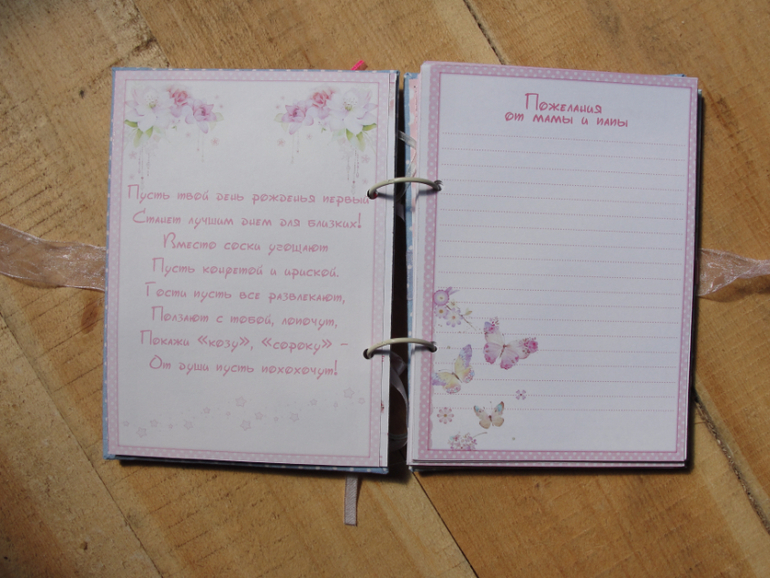 Пусть твой день рожденья первый
Станет лучшим днем для близких!
Вместо соски угощают
Пусть конфетой и ириской.
Гости пусть все развлекают,
Ползают с тобой, лопочут,
Покажи «козу», «сороку» –
От души пусть похохочут!
Пожелания
от мамы и папы